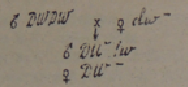 ♂ DWDW × ♀ dw–
↓
♂ DW
♀ DW–